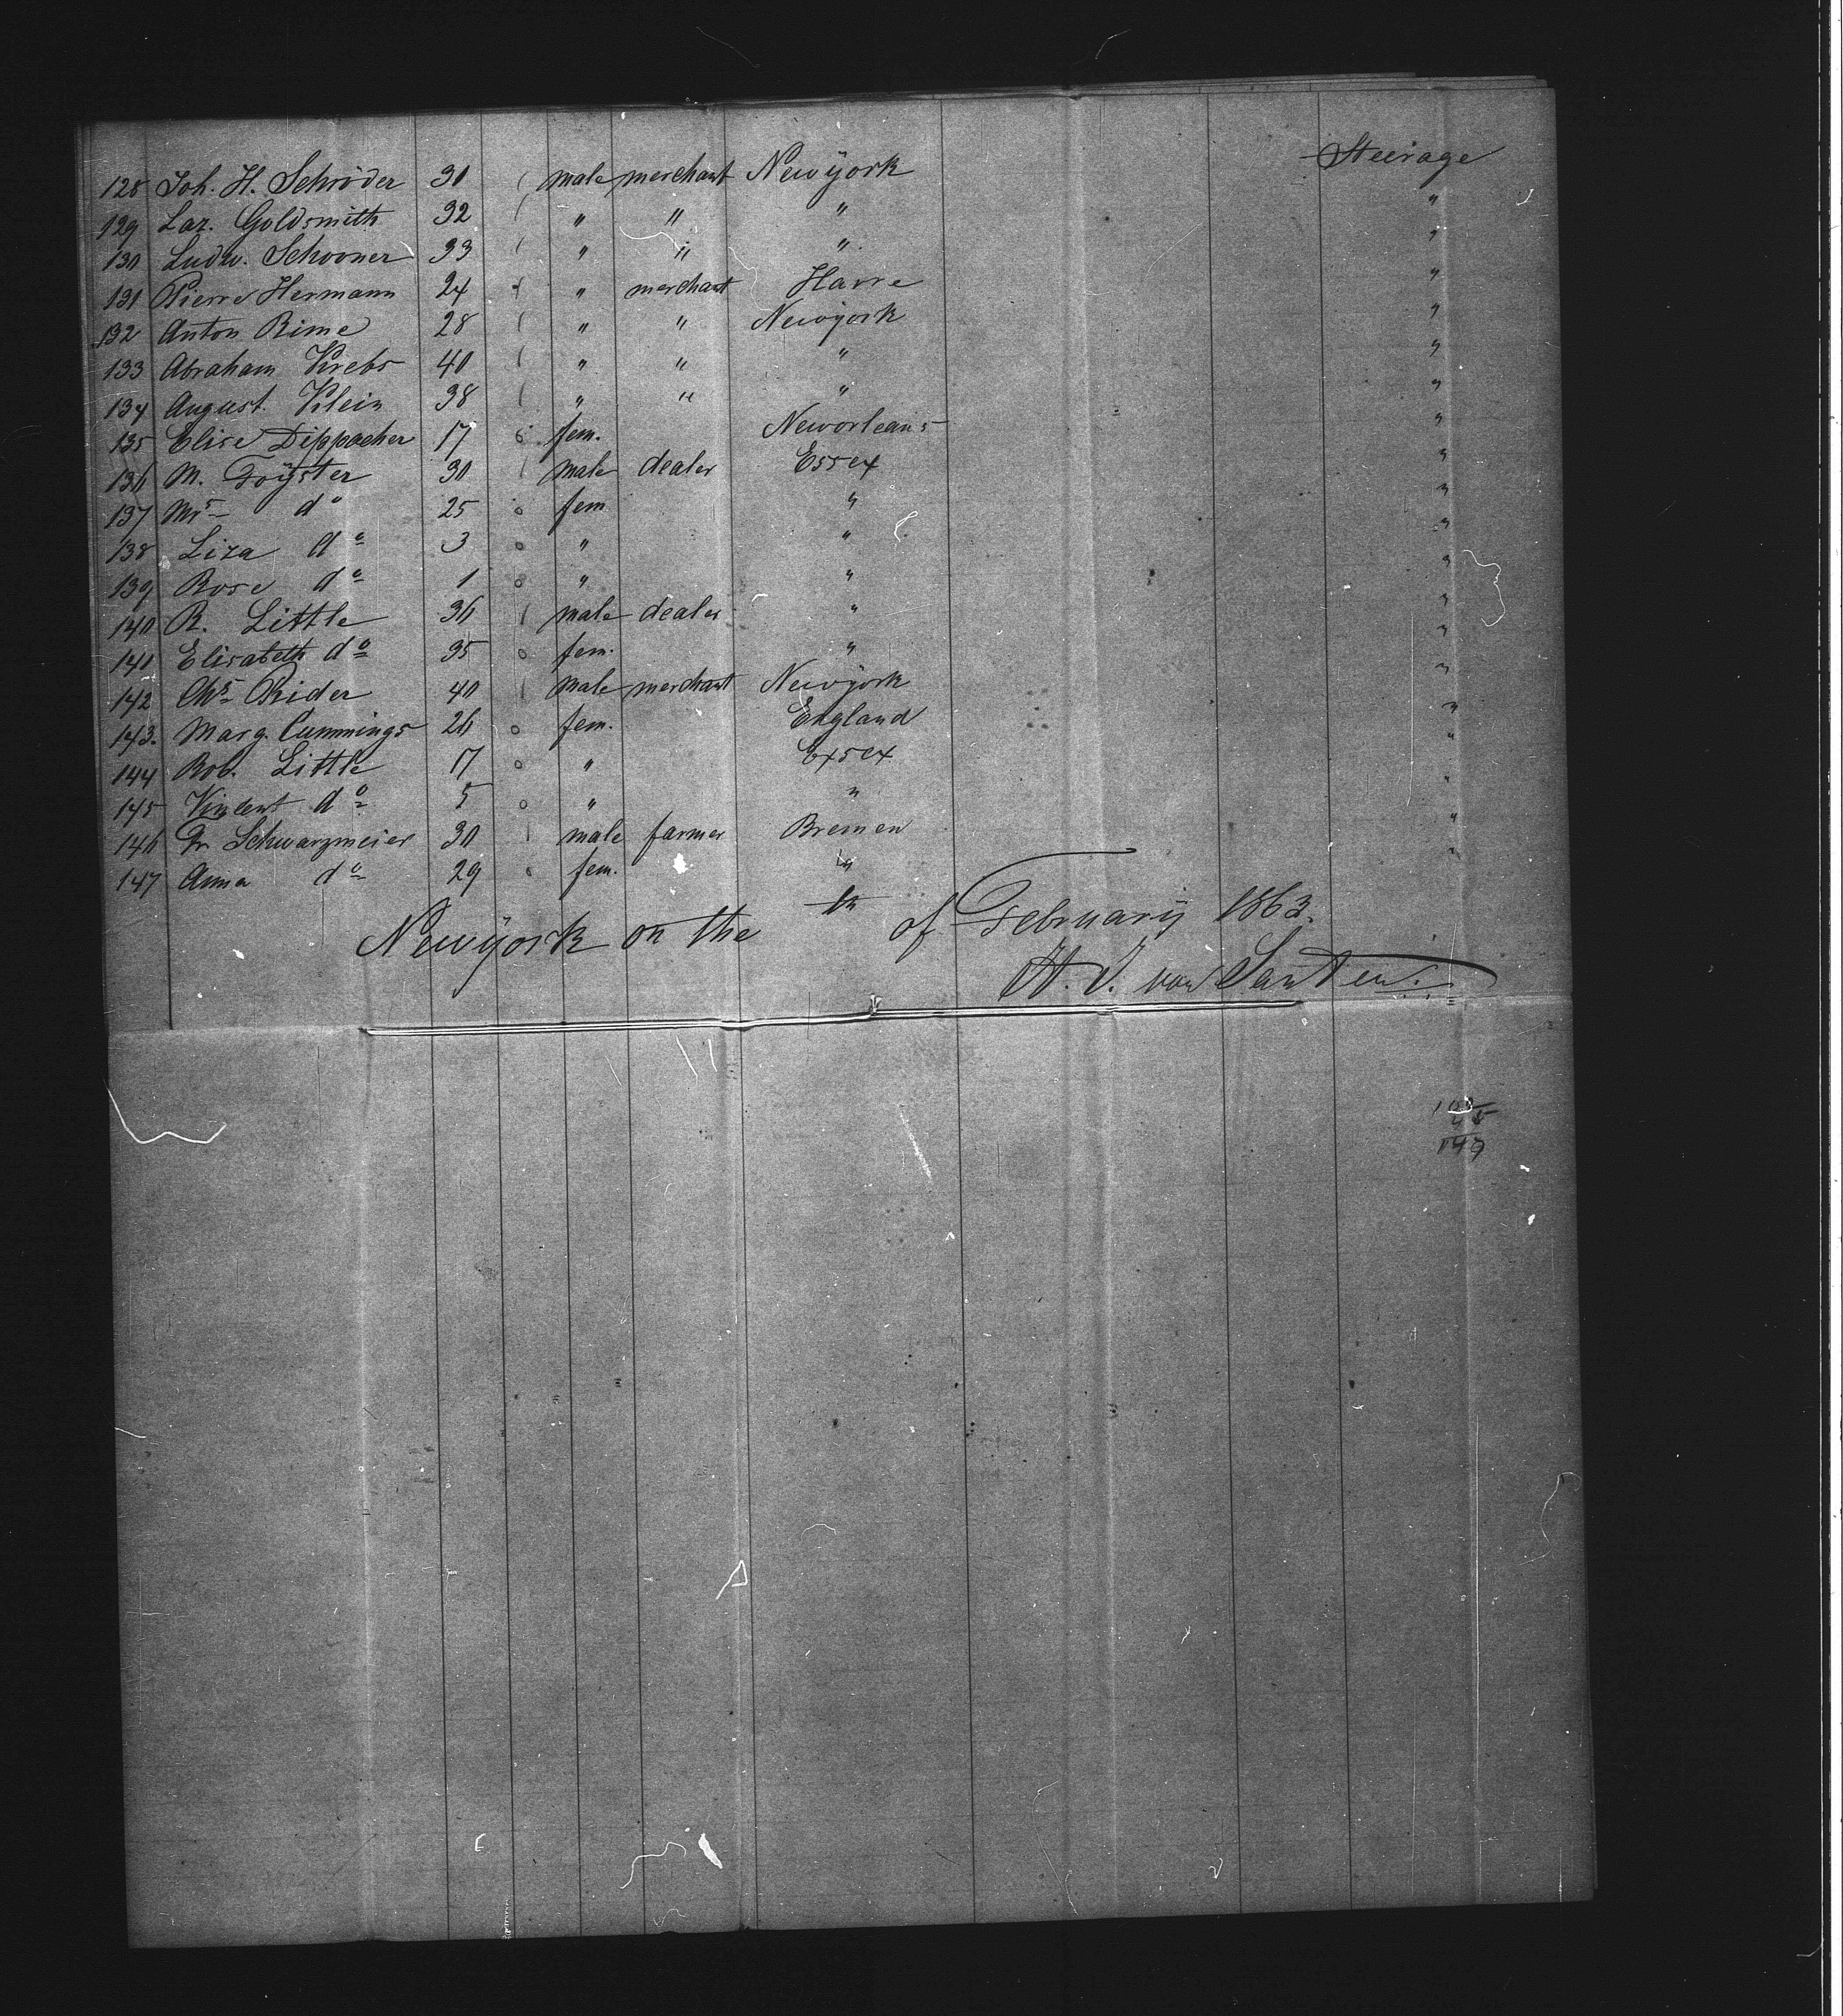 128 Joh. H. Schröder 30 male merchant Newÿork Steerage
129 Laz. Goldsmith 32 " " " "
130 Ludw. Schooner 33 " " " "
131 Pierre Hermann 24 " merchant Havre "
132 Anton Rime 28 " " Newÿork "
133 Abraham Krebs 40 " " " "
134 August. Klein 38 " " " "
135 Elise Dippacher 17 fem. Neworleans "
136 M. Foÿster 30 male dealer Essex "
137 Mrs do 25 fem " "
138 Liza do 3 " " "
139 Rose do 1 " " "
140 R. Little 36 male dealer " "
141 Elisabeth do 35 fem. " "
142 Chs Rider 40 male merchant Newÿork "
143. Marg. Cummings 26 fem. England "
144 Rob. Little 17 " Exsex "
145 Vincent do 5 " " "
146 Fr. Schwarzmeier 30 male farmer Bremen "
147 Anna do 29 fem. " "
Newÿork on the th of Februarÿ 1863.
H. J. von Santen.
147